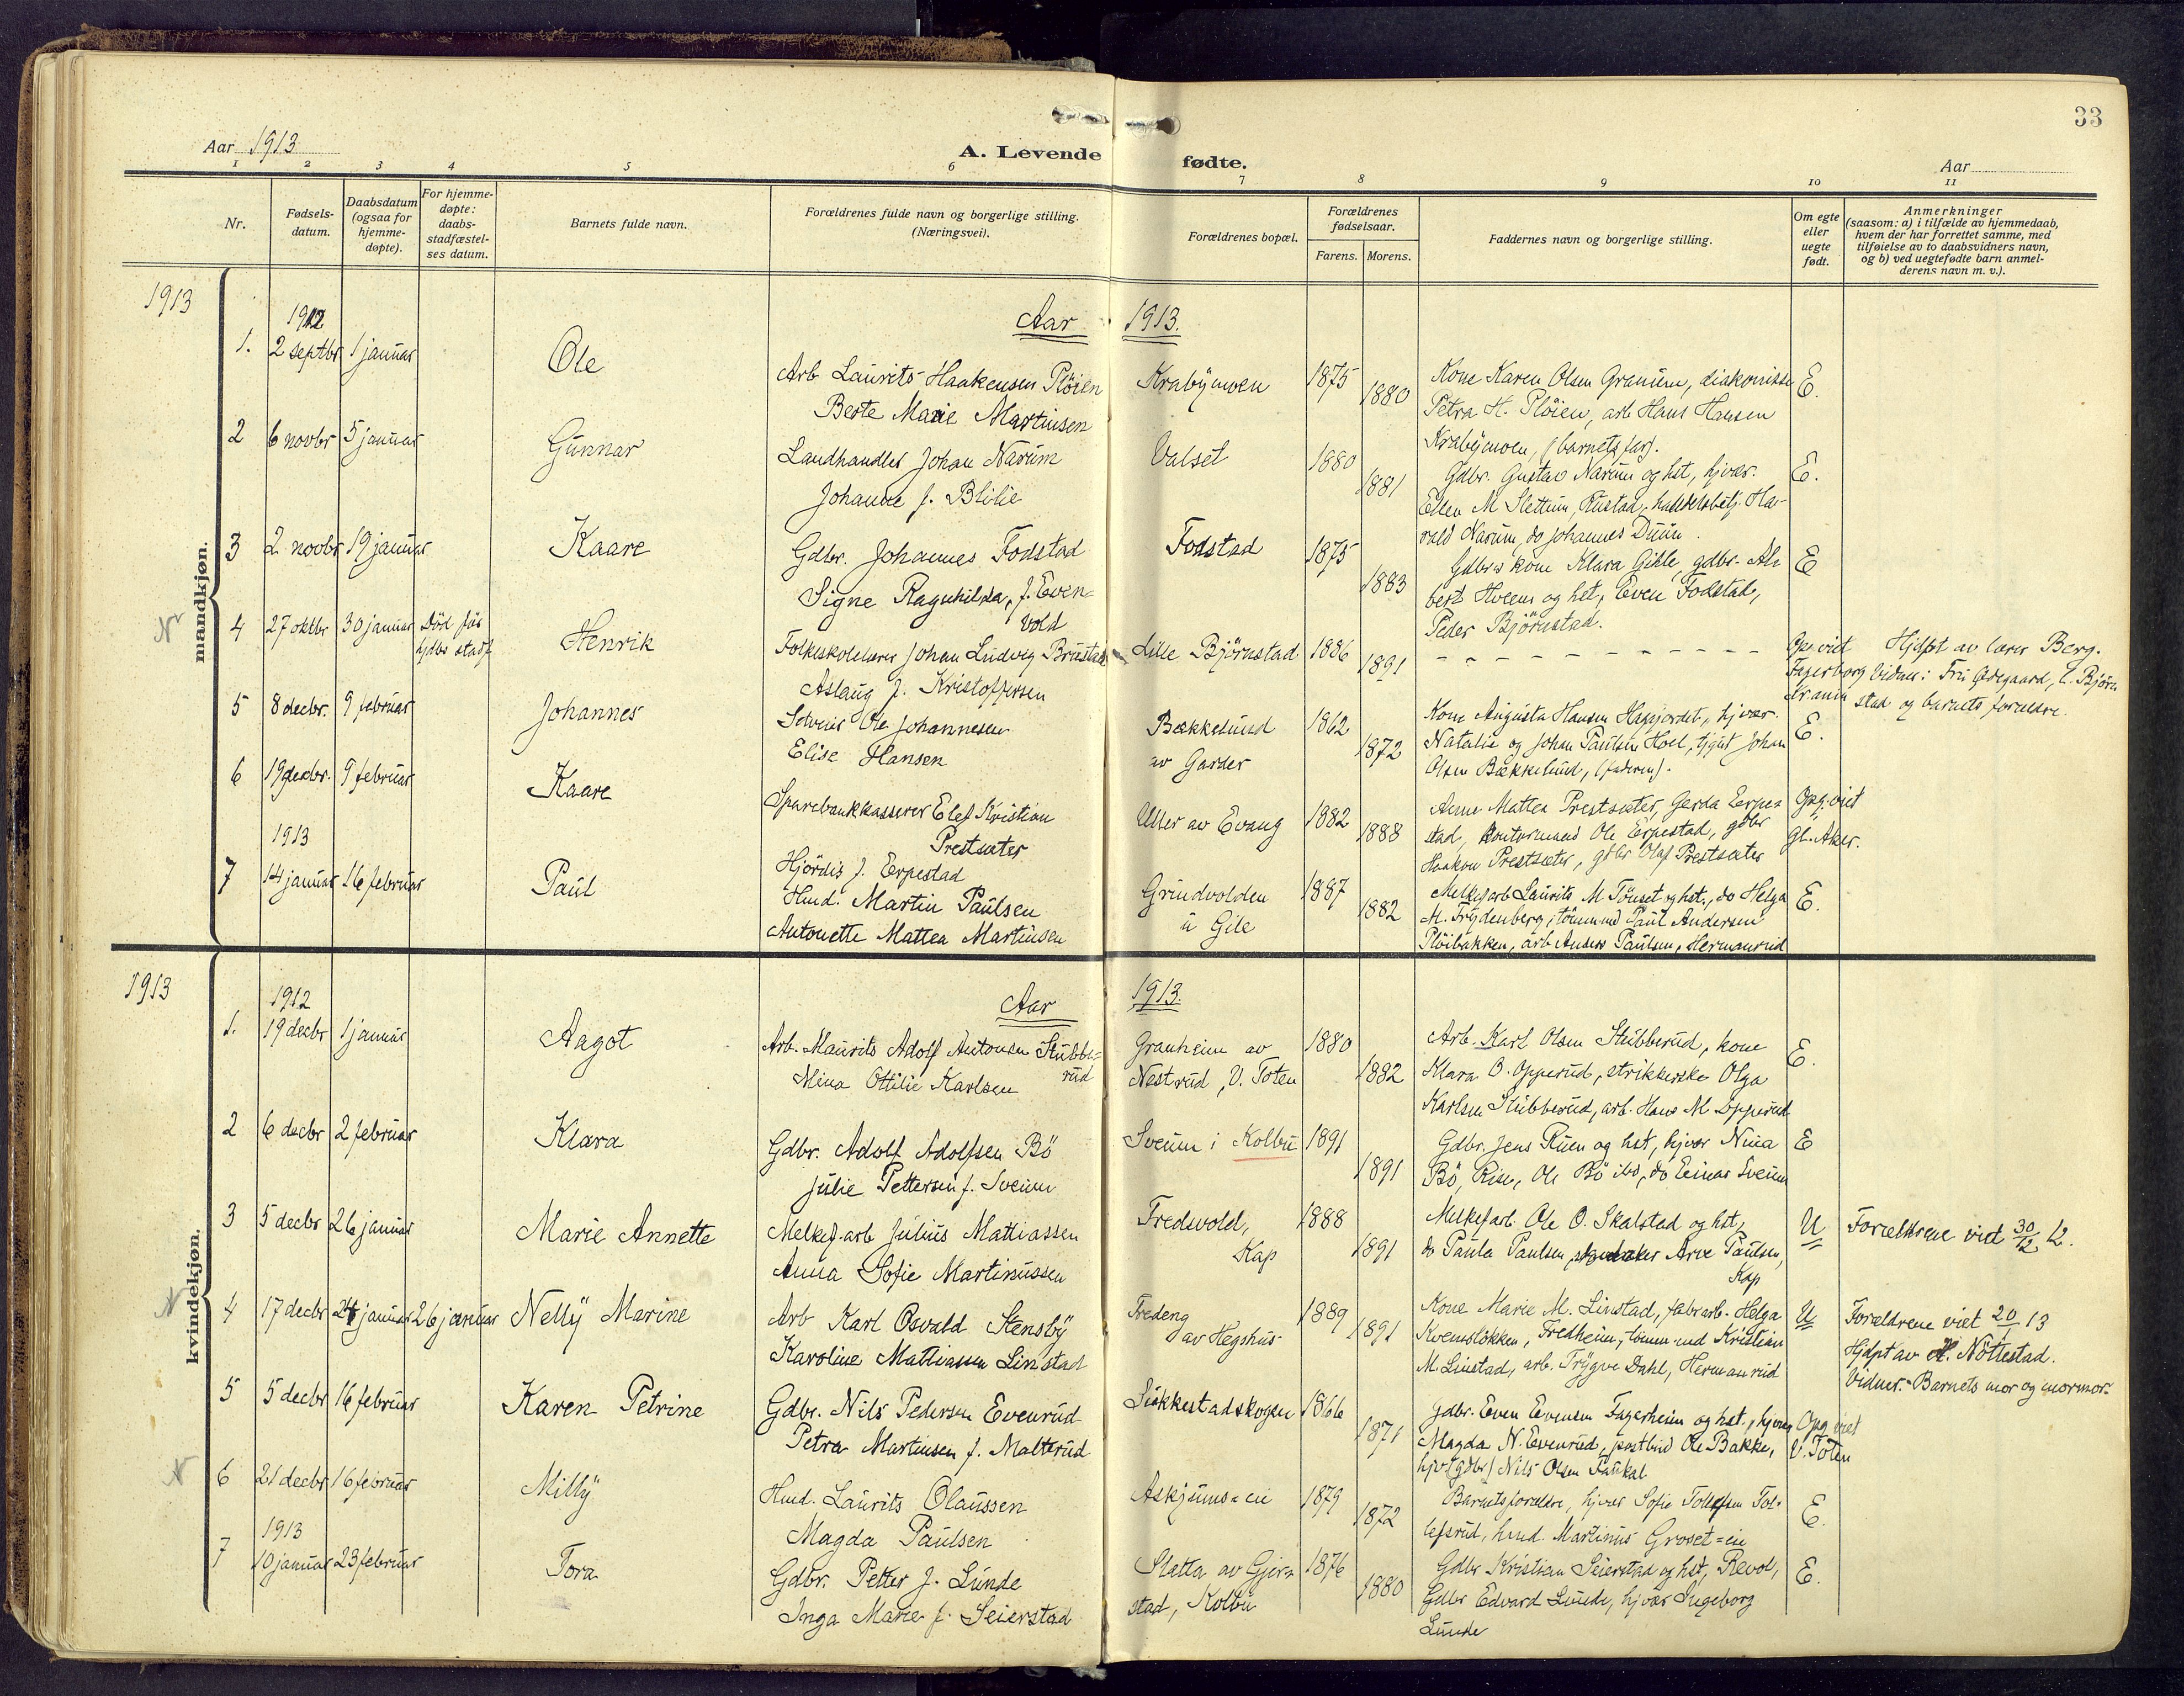 33
Aar 1913
A. Levende fødte.
Aar
1 2 3 4 5 6 7 8 9 10 11
Nr.
Fødsels-
datum.
Daabsdatum
(ogsaa for
hjemme-
døpte).
For hjemme-
døpte:
daabs-
stadfæstel-
ses datum.
Barnets fulde navn.
Forældrenes fulde navn og borgerlige stilling.
(Næringsvei).
Forældrenes bopæl.
Forældrenes
fødselsaar.
Farens. Morens.
Faddernes navn og borgerlige stilling.
Om egte
eller
uegte
født.
Anmerkninger
(saasom: a) i tilfælde av hjemmedaab,
hvem der har forrettet samme, med
tilføielse av to daabsvidners navn,
og b) ved uegtefødte barn anmel-
derens navn m. v.).
1913
mandkjøn.
Aar 1913.
1912
1. 2 septbr 1 januar
Ole
Arb Laurits Haakensen Plöien
Berte Marie Martinsen
Krabÿmoen
1875
1880
Kone Karen Olsen Granum, diakonisse
Petra H. Plöien, arb Hans Hansen
Krabÿmoen, (barnets far).
E.
2 6 novbr 5 januar
Gunnar
Landhandler Johan Narum
Johanne f. Blilie
Valset
1880
1881
Gdbr. Gustav Narum og hst, hjvær.
Ellen M Slettum, Rustad, handelsbetj. Ha-
rald Narum, do Johannes Duun.
E.
3 2 novbr 19 januar
Kaare
Gdbr. Johannes Fodstad
Signe Ragnhilda, f. Even=
vold
Fodstad
1875
1883
Gdbrs kone Klara Gihle, gdbr. Al-
bert Hveem og hst, Even Fodstad,
Peder Björnstad.
E
N
4 27 oktbr 30 januar Död för
hjdbs stadf
Henrik
Folkeskolelærer Johan Ludvig Brustad
Aslaug f. Kristoffersen
Lille Björnstad
1886
1891
Opg. viet
Fagerborg
Hjdöpt av lærer Berg.
Vidner: Fru Ödegaard, L. Björn
stad og barnets forældre.
5 8 decbr. 9 februar
Johannes
Selveier Ole Johannesen
Elise Hansen
Bækkelund
av Garder
1862
1872
Kone Augusta Hansen Hagejordet, hjvær.
Natalie og Johan Paulsen Hoel, tjgut Johan
Olsen Bækkelund, (faderen).
E.
6 19 decbr. 9 februar
Kaare
Sparebankkasserer Elef Kristian
Prestsæter
Hjördis f. Erpestad
Uller av Evang
1882
1888
Anne Mattea Prestsæter, Gerda Erpe=
stad, kontormand Ole Erpestad, gdbr
Haakon Prestsæter, gdbr Olaf Prestsæter
Opg. viet
Gl. Aker.
1913
7 14 januar 16 februar
Paul
Hmd. Martin Paulsen
Antonette Mattea Martinsen
Grindvolden
u Gile
1887
1882
Melkefarb Laurits M Tönset og hst., do Helga
M. Frydenberg, tömmermd Paul Andersen
Plöibakken, arb Anders Paulsen, Hermanrud
E.
1913
kvindekjøn.
Aar 1913.
1912
1. 19 decbr 1 januar
Aagot
Arb. Maurits Adolf Antonsen Stubbe=
rud
Mina Ottilie Karlsen
Granheim av
Nestrud, V. Toten
1880
1882
Arb. Karl Olsen Stubberud, kone
Klara O. Opperud, strikkerske Olga
Karlsen Stubberud, arb. Hans M Opperud
E.
2 6 decbr 2 februar
Klara
Gdbr. Adolf Adolfsen Bö
Julie Pettersen f. Sveum
Sveum i Kolbu
1891
1891
Gdbr. Jens Ruen og hst, hjvær Nina
Bö, Rise, Ole Bö ibd, do Einar Sveum
E
3 5 decbr 26 januar
Marie Annette
Melkef.arb Julius Mattiassen
Anna Sofie Martinussen
Fredvold,
Kap
1888
1891
Melkefarb Ole O. Skalstad og hst,
do Paula Paulsen, Arve Paulsen,
Kap
U
Forældrene viet 30/12 12.
N
4 17 decbr 24 januar 26 januar
Nellÿ Marine
Arb Karl Osvald Stensbÿ
Karoline Mattiassen Linstad
Fredeng
av Hegshus
1889
1891
Kone Marie M. Linstad, fabrarb. Helga
Kvemslökken, Fredheim, tömm md Kristian
M. Linstad, arb. Trÿgve Dahl, Hermanrud
U
Forældrene viet 20/1 13
Hjdpt av M. Nöttestad.
Vidner: Barnets mor og mormor.
5 5 decbr 16 februar
Karen Petrine
Gdbr. Nils Pedersen Evenrud
Petra Martinsen f. Malterud
Slökkestadskogen
1866
1871
Gdbr. Even Evensen Fagerheim og hst., hjvær
Magda N. Evenrud, postbud Ole Bakke,
hjv (gdbr) Nils Olsen Faukal
Opg viet
V. Toten
N
6 21 decbr 16 februar
Millÿ
Hmd. Laurits Olaussen
Magda Paulsen
Askjums=eie
1879
1872
Barnets forældre, hjvær Sofie Tollefsen Tol-
lefsrud, hmd. Martinus Groset=eie
E.
1913
7 10 januar 23 februar
Tora
Gdbr. Petter J. Lunde
Inga Marie f. Seierstad
Slatta av Gjer=
stad, Kolbu
1876
1880
Gdbr Kristian Seierstad og hst, Revol,
Gdbr Edvard Lunde, hjvær Ingeborg
Lunde
E.